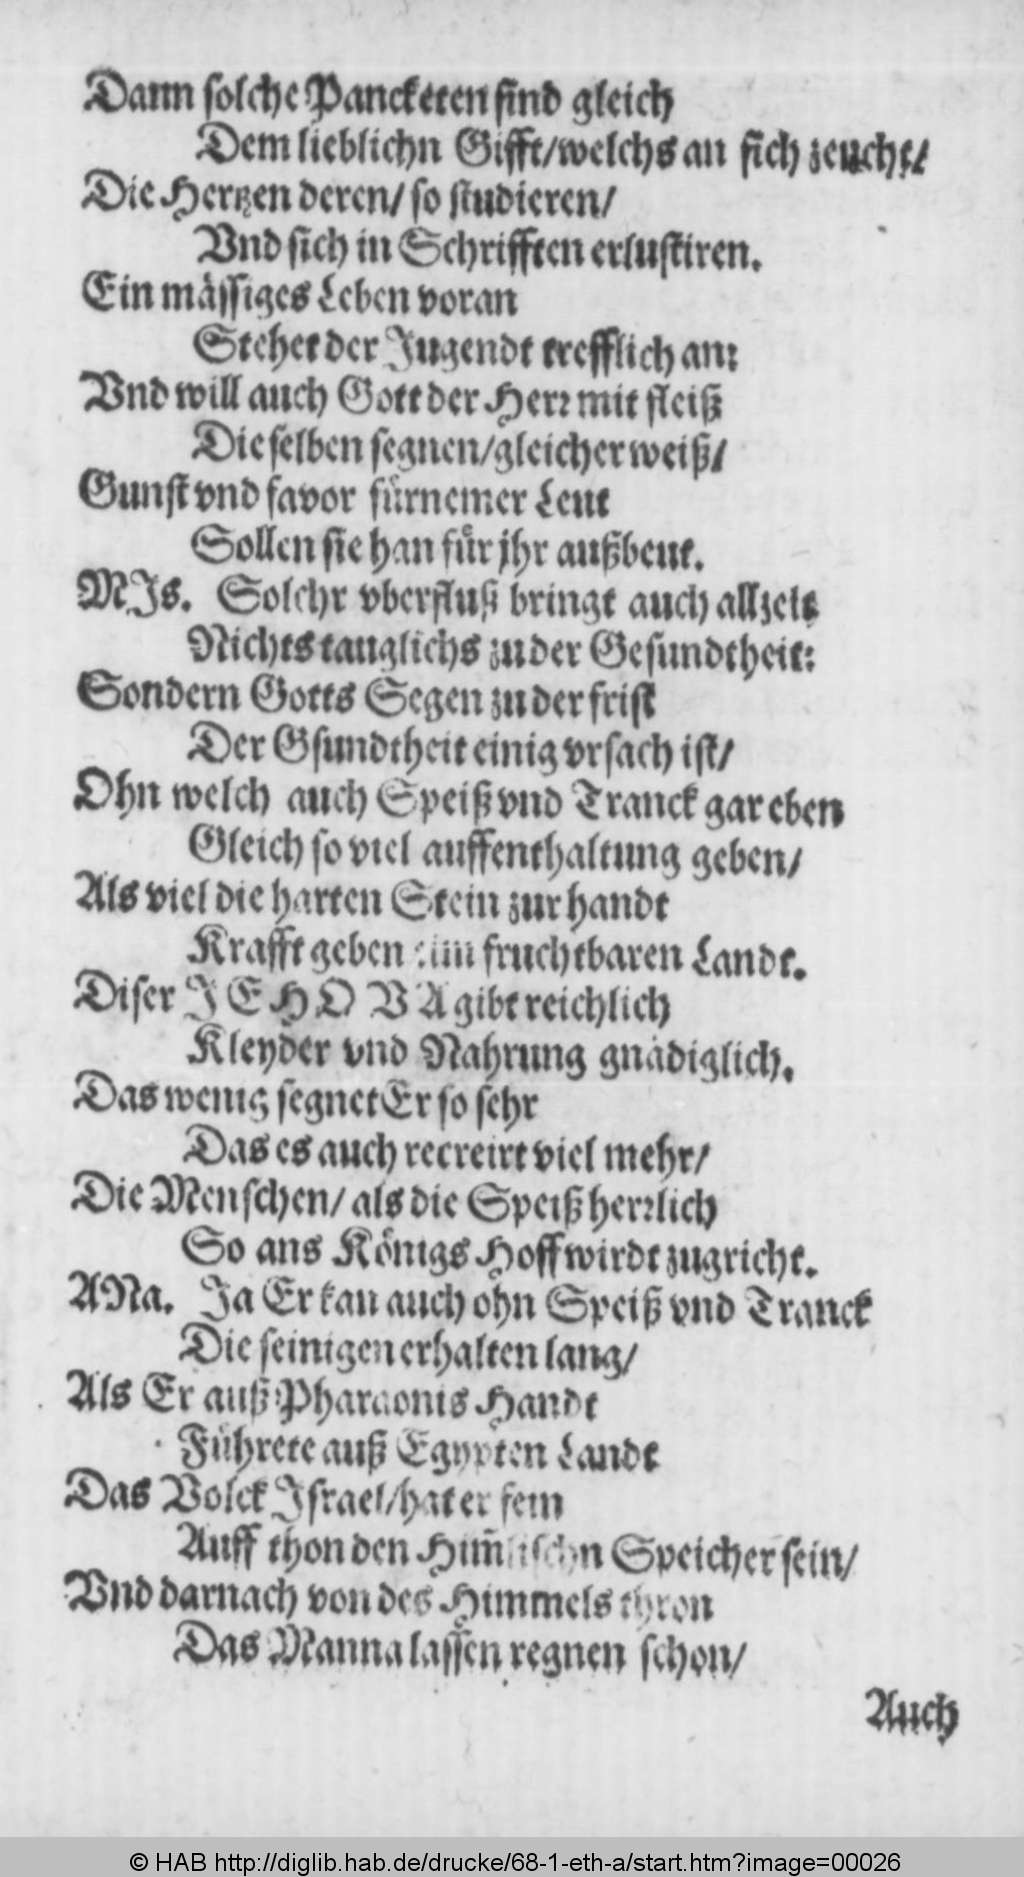 Dann solche Pancketen sind gleich
Dem lieblichn Gifft/welchs an sich zeucht/
Die Hertzen deren/ so studieren/
Vnd sich in Schrifften erlustiren.
Ein mässiges Leben voran
Stehet der Jugendt trefflich an:
Vnd will auch Gott der Herr mit fleiß
Dieselben segnen/gleicher weiß/
Gunst vnd favor fürnemer Leut
Sollen sie han für jhr außbeut.
MJs. Solchr vberfluß bringt auch allzeit
Nichts tauglichs zu der Gesundtheit:
Sondern Gotts Segen zu der frist
Der Gsundtheit einig vrsach ist/
Ohn welch auch Speiß vnd Tranck gar eben
Gleich so viel auffenthaltung geben/
Als viel die harten Stein zur handt
Krafft geben eim fruchtbaren Landt.
Diser JEHOVA gibt reichlich
Kleyder vnd Nahrung gnädiglich.
Das wenig segnet Er so sehr
Das es auch recreirt viel mehr/
Die Menschen/ als die Speiß herrlich
So ans Königs Hoff wirdt zugricht.
ANa. Ja Er kan auch ohn Speiß vnd Tranck
Die seinigen erhalten lang/
Als Er auß Pharaonis Handt
Führete auß Egypten Landt
Das Volck Israel/hat er fein
Auff thon den Him̃lischn Speicher sein/
Vnd darnach von des Himmels thron
Das Manna lassen regnen schon/
Auch
© HAB http://diglib.hab.de/drucke/68-1-eth-a/start.htm?image=00026